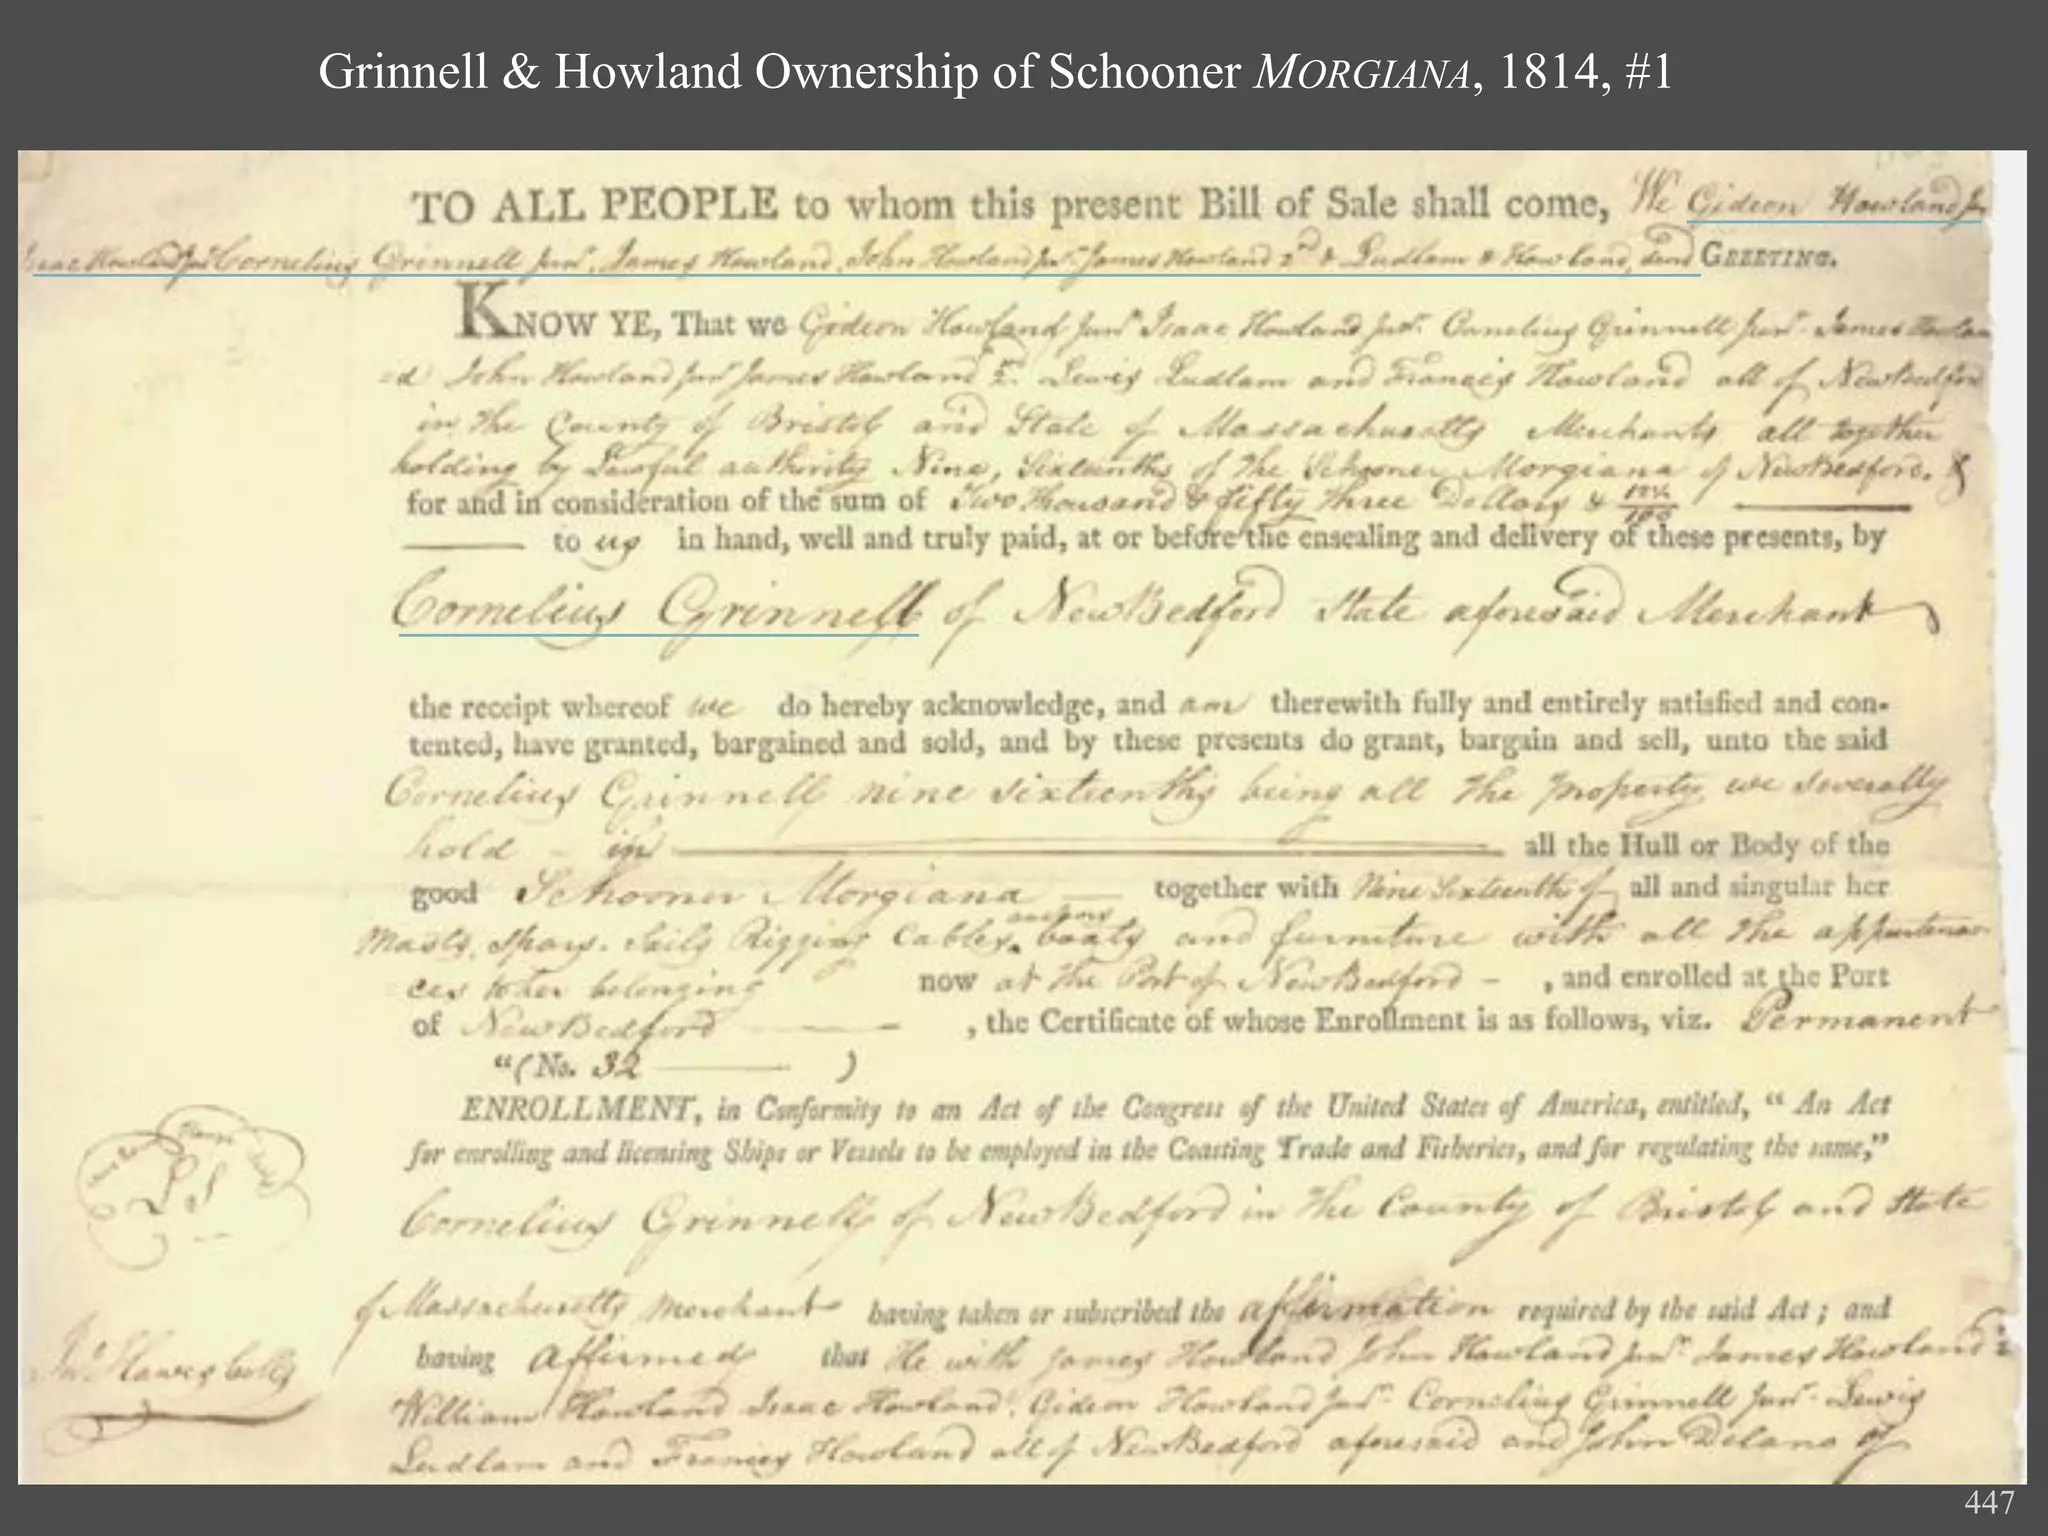 Grinnell & Howland Ownership of Schooner MORGIANA, 1814, #1
TO ALL PEOPLE to whom this present Bill of Sale shall come, We Gideon Howland Jr
Isaac Howland Junr Cornelius Grinnell Junr. James Howland, John Howland Junr. James Howland 2nd & Ludlam & Howland, Send GREETING.
KNOW YE, That we Gideon Howland Junr Isaac Howland Junr. Cornelius Grinnell Junr. James Howlan
d John Howland Junr James Howland 2d. Lewis Ludlam and Francis Howland all of New Bedford
in the County of Bristol and State of Massachusetts Merchants all together
holding by Lawful authority Nine, Sixteenths of the Schooner Morgiana of New Bedford. &
for and in consideration of the sum of Two thousand & fifty three Dollars &
to us in hand, well and truly paid, at or before the ensealing and delivery of these presents, by
Cornelius Grinnell of New Bedford State aforesaid Merchant
the receipt whereof we do hereby acknowledge, and am therewith fully and entirely satisfied and con-
tented, have granted, bargained and sold, and by these presents do grant, bargain and sell, unto the said
Cornelius Grinnell nine sixteenths being all the property we severally
hold - in all the Hull or Body of the
good Schooner Morgiana together with Nine Sixteenths of all and singular her
Masts, Spars. Sails Rigging Cables. anchors boats and furniture with all the appurtenan
ces to her belonging now at the Port of New Bedford - , and enrolled at the Port
of New Bedford , the Certificate of whose Enrollment is as follows, viz. Permanent
"(No. 32 )
ENROLLMENT, in Conformity to an Act of the Congress of the United States of America, entitled, " An Act
for enrolling and licensing Ships or Vessels to be employed in the Coasting Trade and Fisheries, and for regulating the same,"
LS
Cornelius Grinnell of New Bedford in the County of Bristol and State
of Massachusetts Merchant having taken or subscribed the affirmation required by the said Act ; and
having Affirmed that He with James Howland John Howland Junr. James Howland 2
Jn. Hawes Collr
William Howland Isaac Howland. Gideon Howland Junr. Cornelius Grinnell Junr. Lewis
Ludlam and Francis Howland all of New Bedford aforesaid and John Delano of
447